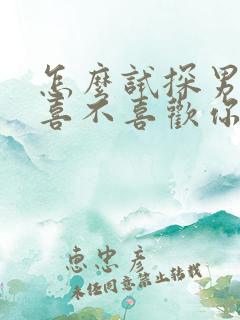 怎麼試探男
喜不喜歡你
惠忠彥
未经同意禁止转载